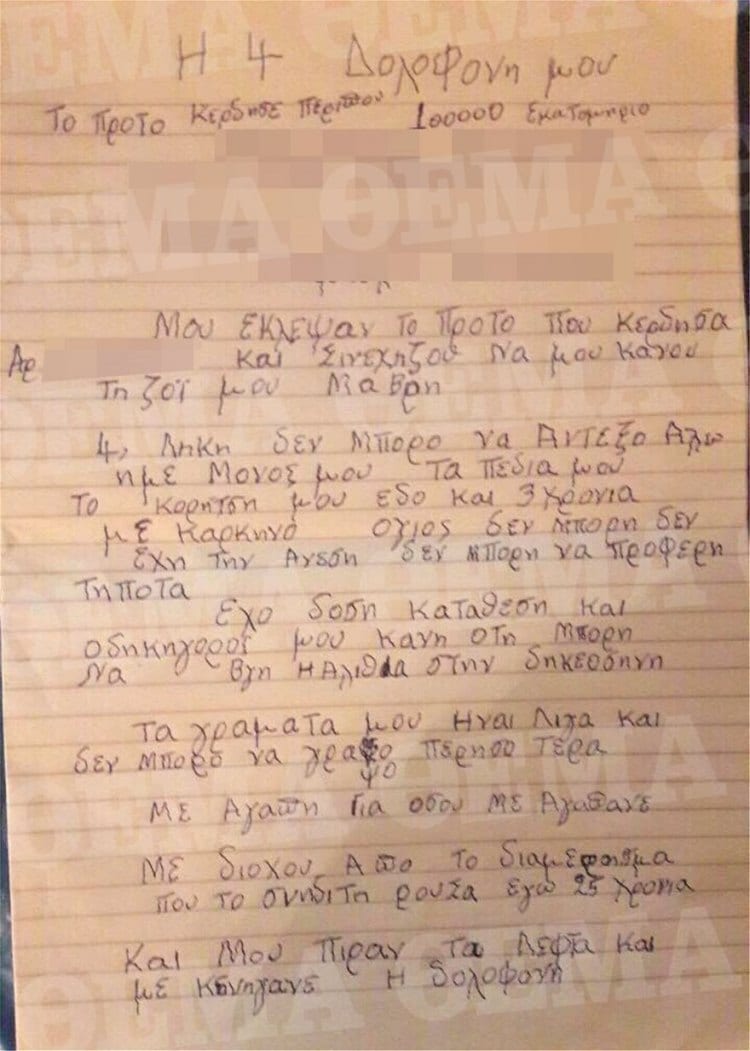 Η 4 Δολοφονη μου
Το προτο κερδησε περιπου 100000 εκατομηριο
Μου εκλεψαν το προτο που κερδησα
Αρ και Σινεχηζου να μου κανου
τη ζοϊ μου μαβρη
4, Ληκη δεν Μπορο να Αντεξο Αλω
ημε Μονος μου τα πεδια μου
το κορητση μου εδο και 3 χρονια
με καρκηνο ογιος δεν μπορη δεν
εχη την Ανεση δεν μπορη να προφερη
τηποτα
Εχο δοση καταθεση και
οδηκηγοροϊ μου κανη οτη μπορη
Να βγη η Αλιθια στην δηκεοσηνη
Τα γραματα μου Ηναι Λιγα και
δεν μπορο να γραψο περησοτερα
ψο
Με Αγαπη για οσου με Αγαπανε
Με διοχου Απο το διαμερησμα
που το σηνδιτη ρουσα εγω 25 χρονια
Και Μου πιραν τα Λεφτα και
με κηνηγανε η δολοφονη
ΘΕΜΑ